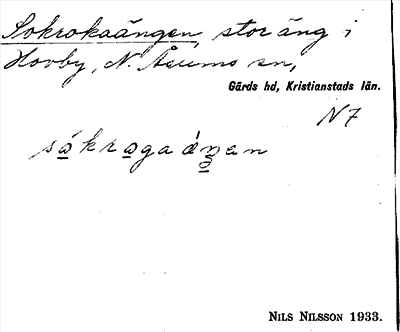 Sokrokaängen, stor äng i
Hovby, N. Åsums sn,
Gärds hd, Kristianstads län.
N7
sókrogaáŋen
NILS NILSSON 1933.